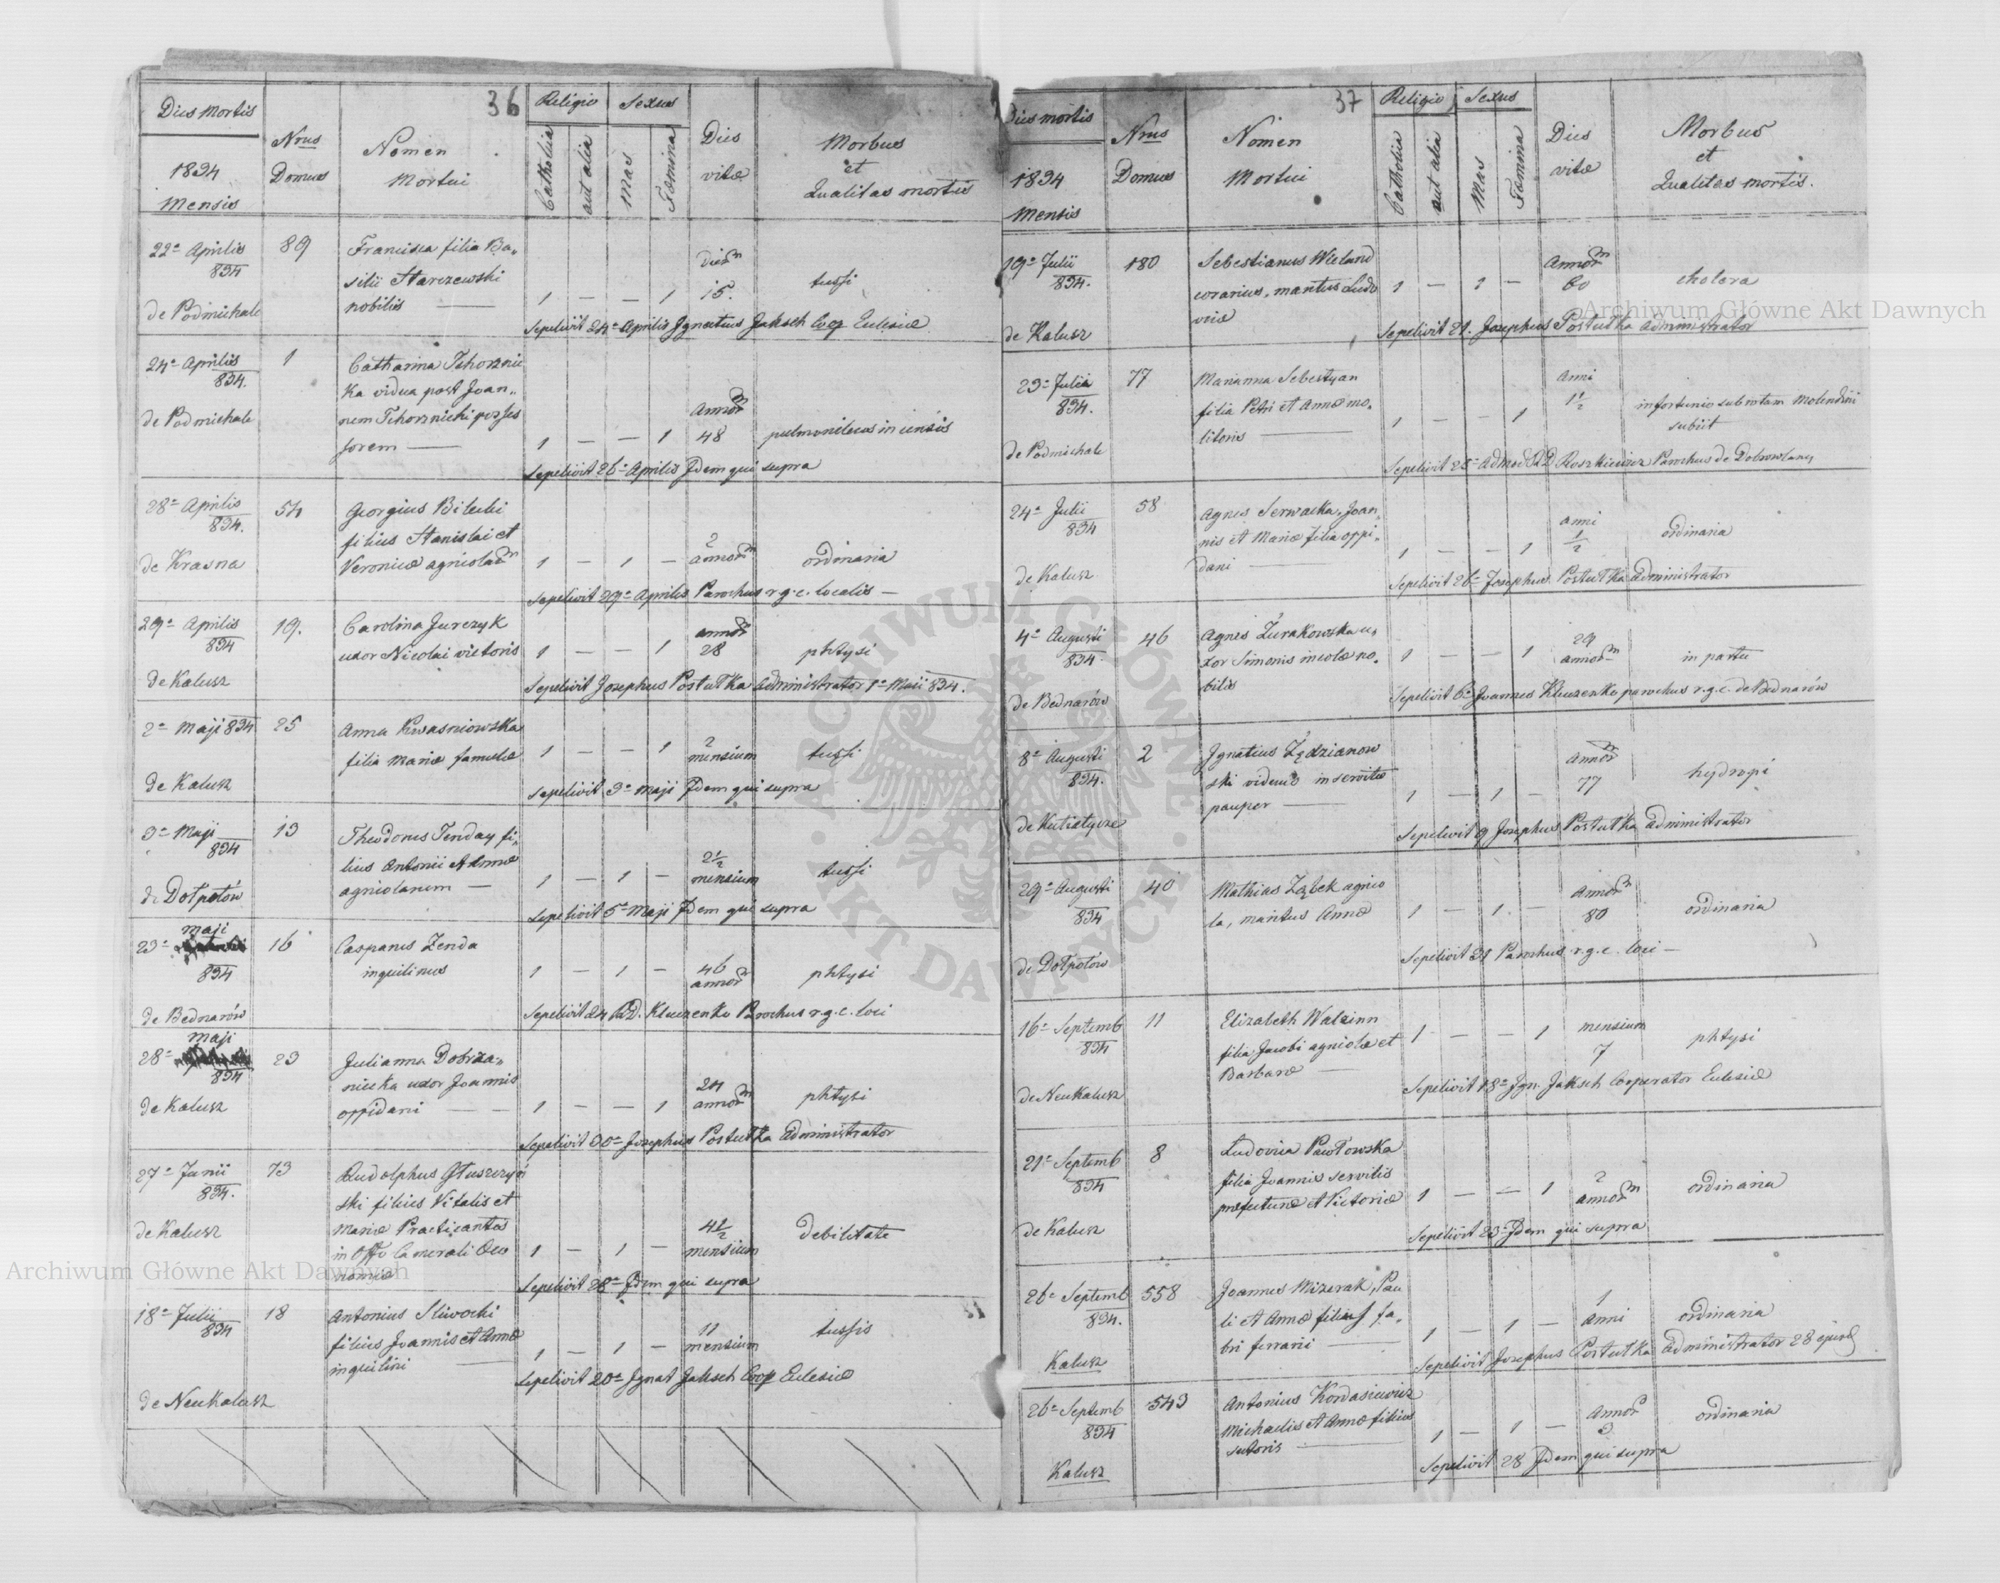 36
Dies Mortis
1834
Mensis
Nrus
Domus
Nomen
Mortui
Religio
Catholica
aut alia
Sexus
Mas
Fœmina
Dies
vitæ
Morbus
et
Qualitas mortis
22ª Aprilis
834
de Podmichale
89
Francisca filia Ba-
silii Starczewski
nobilis
1 — — 1
dier
15.
tussi
Sepelivit 24ª Aprilis Ignatius Jaksch Coop Eclesiæ
24ª Aprilis
834.
de Podmichale
1
Catharina Tchorznic
ka vidua post Joan-
nem Tchorznicki posses
sorem
1 — — 1
Annor
48
Sepelivit 26ª Aprilis Idem qui supra
28ª Aprilis
834.
de Krasna
54
Georgius Bilecki
filius Stanislai et
Veronicæ agricolar
1 — 1 —
2
annor
ordinaria
Sepelivit 29ª Aprilis Parochus r.g.c. localis —
29ª Aprilis
834
de Kalusz
19.
Carolina Jurczyk
uxor Nicolai vietoris
1 — — 1
annor
28
phtysi
Sepelivit Josephus Postutka Administrator 1ª Maii 834.
2ª Maji 834
de Kalusz
25
Anna Kwasniowska
filia Mariæ famulæ
1 — — 1
2
mensium
tussi
Sepelivit 3ª Maji Idem qui supra
3ª Maji
834
de Dołpotów
13
Theodorus Tenday fi-
lius Antonii et Annæ
agricolarum —
1 — 1 —
2½
mensium
tussi
Sepelivit 5ª Maji Idem qui supra
maji
23ª
834
de Bednarów
16
Casparus Zenda
inquilinus
1 — 1 —
46
annor
phtysi
Sepelivit 24 RD. Kluczenko Parochus r.g.c. loci
maji
28ª
834
de Kalusz
23
Julianna Dobrza-
niecka uxor Joannis
oppidani — —
1 — — 1
24
annor
phtysi
Sepelivit 30ª Josephus Postutka Administrator
27ª Junii
834.
de Kalusz
73
Rudolphus Głuszczyń
ski filius Vitalis et
Mariæ Practicantis
in Offo Camerali Oeco
nomiæ
1 — 1 —
4½
mensium
Debilitate
Sepelivit 28ª Idem qui supra
18ª Julii
834
de Neukalusz
18
Antonius Sliwocki
filius Joannis et Annæ
inquilini
1 — 1 —
11
mensium
tussis
Sepelivit 20ª Ignat Jaksch Coop Eclesiæ
37
Dies mortis
1834
Mensis
Nrus
Domus
Nomen
Mortui
Religio
Catholica
aut alia
Sexus
Mas
Fœmina
Dies
vitæ
Morbus
et
Qualitas mortis.
19ª Julii
834.
de Kalusz
180
Sebestianus Wieland
cerarius, maritus Ludo
vicæ
1 — 1 —
Annor
60
cholera
Sepelivit 21. Josephus Postutka Administrator
23ª Julii
834.
de Podmichale
77
Marianna Sebestyan
filia Petri et Annæ mo-
litoris
1 — — 1
Anni
1½
infortunio sub rotam Molendini
subiit
Sepelivit 25ª Admod RD Roszkiewicz Parochus de Dobrowlany
24ª Julii
834
de Kalusz
58
Agnes Serwacka, Joan-
nis et Mariæ filia oppi-
dani
1 — — 1
anni
½
ordinaria
Sepelivit 26ª Josephus Postutka Administrator
4ª Augusti
834.
de Bednarów
46
Agnes Żurakowska u-
xor Simonis incolæ no-
bilis
1 — — 1
29
annor
in partu
Sepelivit 6ª Joannes Kluczenko parochus r.g.c. de Bednarów
8ª Augusti
834.
de Kutietycze
2
Ignatius Zędzianow
ski viduus in servitio
pauper
1 — 1 —
Annor
77
hydropi
Sepelivit 9 Josephus Postutka Administrator
29ª Augusti
834
de Dołpotów
40
Mathias Ząbek agrico
la, maritus Annæ
1 — 1. —
Annor
80
ordinaria
Sepelivit 31 Parochus r.g.c. loci —
16ª Septemb
834
de Neukalusz
11
Elizabeth Walzinn
filia Jacobi agricolæ et
Barbaræ
1 — — 1
mensium
7
phtysi
Sepelivit 18ª Ign. Jaksch Cooperator Eclesiæ
21ª Septemb
834
de Kalusz
8
Ludovica Pawłowska
filia Joannis servilis
præfecturæ et Victoriæ
1 — — 1
2
annor
ordinaria
Sepelivit 23ª Idem qui supra
26ª Septemb
834.
Kalusz
558
Joannes Mizerak, Pau
li et Annæ filius fa-
bri ferrarii
1 — 1 —
1
Anni
ordinaria
Sepelivit Josephus Postutka Administrator 28 ejusd
26ª Septemb
834
Kalusz
543
Antonius Kordasiewicz
Michaelis et Annæ filius
sutoris
1 — 1 —
Annor
3
ordinaria
Sepelivit 28 Idem qui supra
Archiwum Główne Akt Dawnych
Archiwum Główne Akt Dawnych
ARCHIWUM GŁÓWNE · AKT DAWNYCH ·